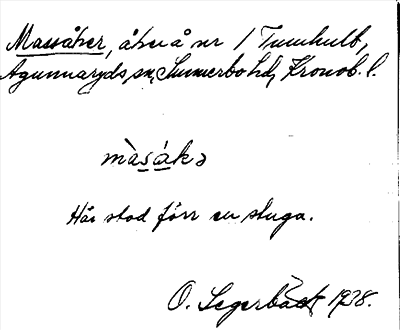 Massåker, åker å nr 1 Tumhult,
Agunnaryds sn, Sunnerbo hd, Kronob. l.
màsákə
Här stod förr en stuga.
O. Segerbäck 1928.